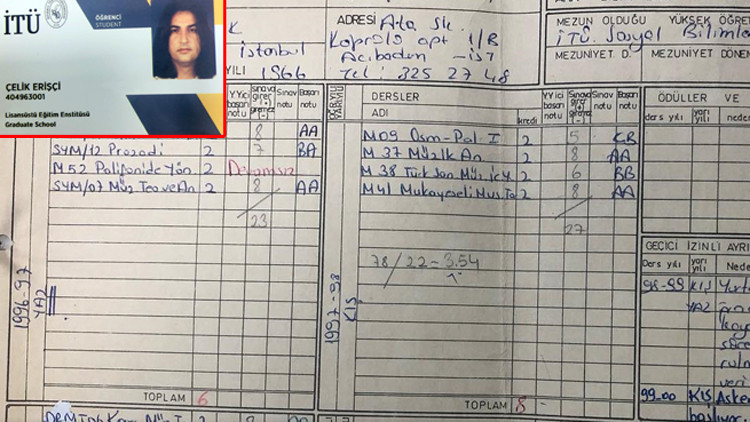 İTÜ
ÖĞRENCİ
STUDENT
ÇELİK ERİŞÇİ
404963001
Lisansüstü Eğitim Enstitüsü
Graduate School
K
İstanbul
YILI 1966
ADRESİ Ata sk.
Köprülü apt 1/B
Acıbadem - İST
Tel: 325 27 48
MEZUN OLDUĞU YÜKSEK ÖĞRE
İTÜ. Sosyal Bilimler
MEZUNİYET D.
MEZUNİYET DÖNEM
Y.Yiçi başarı notu
Sınava girer (+) giremez (-)
Sınav notu
Başarı notu
8 AA
SYM/12 Prozodi 2 7 BA
M 52 Polifonide Yön. 2 Devamsız
SYM/07 Müz Teo ve An 2 8 AA
23
1996-97
YAZ
TOPLAM 6
DERSLER
ADI
kredi
Y.Yiçi başarı notu
Sınava girer (+) giremez (-)
Sınav notu
Başarı notu
M09 Osm-Pal. I 2 5 CB
M 37 Müzik An. 2 8 AA
M 38 Türk San. 2 6 BB
M41 Mukayeseli 2 8 AA
27
78/22 = 3.54
1997-98
KIŞ
TOPLAM 8
ÖDÜLLER VE
ders yılı
yarı yılı
Neder
GEÇİCİ İZİNLİ AYRI
Ders yılı
yarı yılı
Nede
98-99 KIŞ Yurt
YAZ
99.00 KIŞ Asker
başlıyor